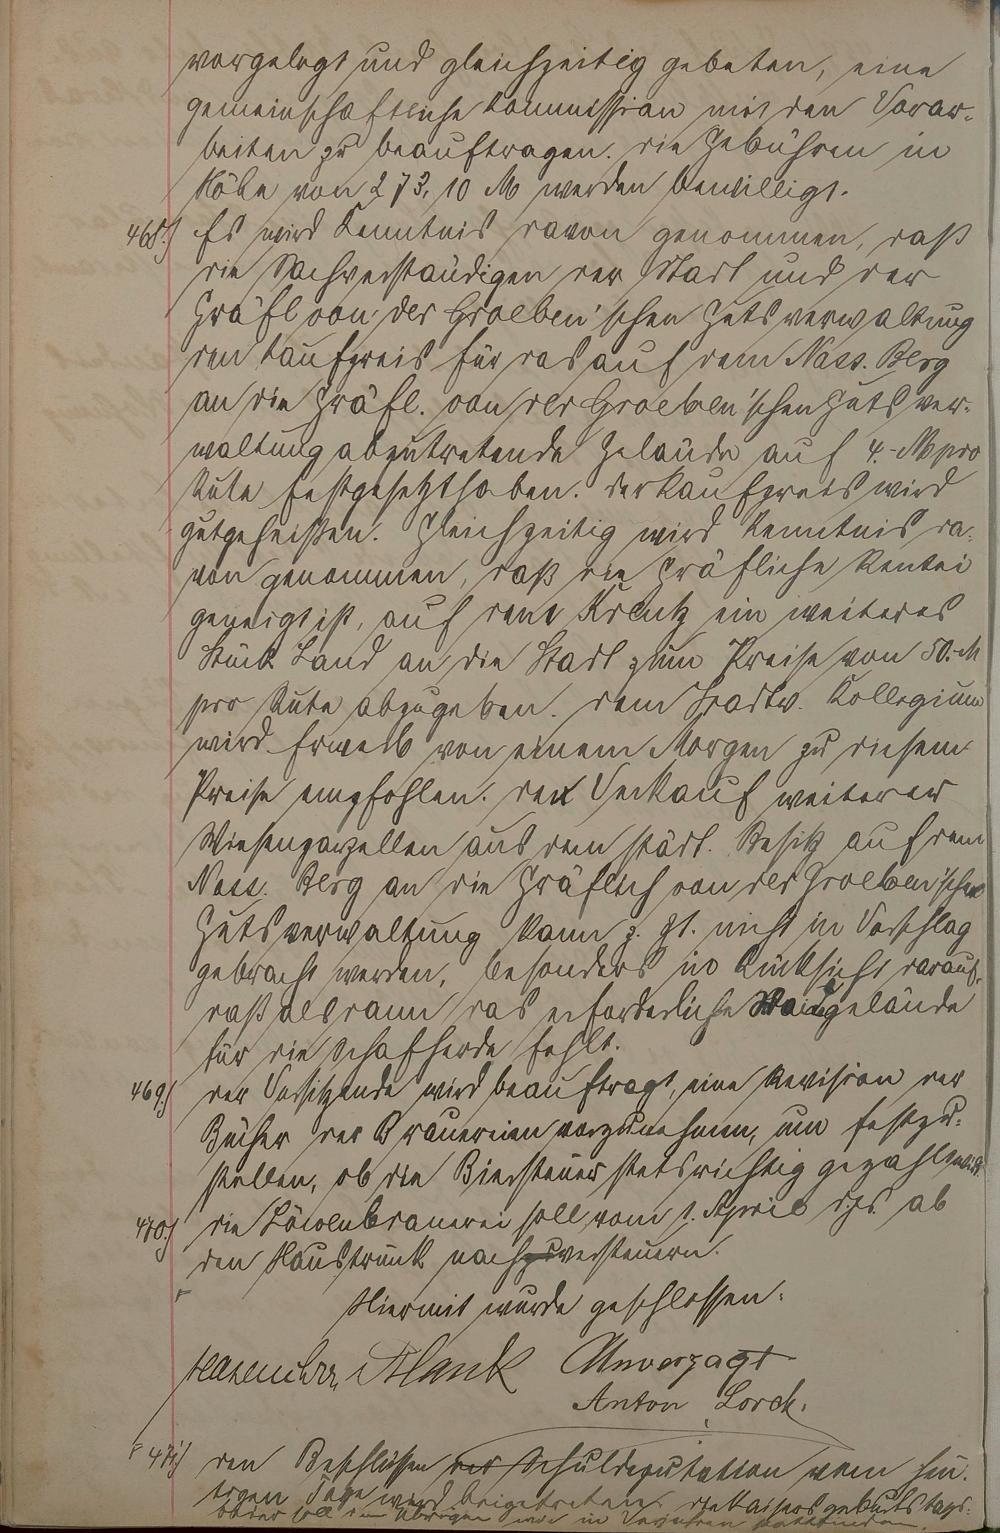 vorgelegt und gleichzeitig gebeten, eine
gemeinschaftliche Kommission mit den Vorar-
beiten zu beauftragen. die Gebühren in
Höhe von 273,10 M werden bewilligt.
468.) Es wird Kenntnis davon genommen, daß
die Sachverständigen der Stadt und der
Gräfl von der Groeben'schen Gutsverwaltung
den Kaufpreis für das auf dem Nass. Berg
an die Gräfl. von der Groeben'schen Gutsver-
waltung abzutretende Gelände auf 4.- M pro
Rute festgesetzt haben. der Kaufpreis wird
gutgeheißen. Gleichzeitig wird Kenntnis da-
von genommen, daß die Gräfliche Rentei
geneigt ist, auf dem Kreutz ein weiteres
Stück Land an die Stadt zum Preise von 50.- M
pro Rute abzugeben. dem Stadtv. Kollegium
wird Erwerb von einem Morgen zu diesem
Preise empfohlen. der Verkauf weiterer
Wiesenparzellen aus dem städt. Besitz auf dem
Nass. Berg an die Gräflich von der Groeben'schen
Gutsverwaltung kann z. Zt. nicht in Vorschlag
gebracht werden, besonders in Rücksicht darauf,
daß alsdann das erforderliche Waidgelände
für die Schafherde fehlt.
469.) der Vorsitzende wird beauftragt, eine Revision der
Bücher der Brauereien vorzunehmen, um festzu-
stellen, ob die Biersteuer stets richtig gezahlt wird.
470.) die Löwenbrauerei soll vom 1. April ds. Js. ab
den Haustrunk nachversteuern.
Hiermit wurde geschlossen.
Blank Unverzagt
Anton Lorch.
471) den Beschlüssen der Schuldeputation vom heu-
tigen Tage wird beigetreten. die Kaisersgeburtstags-
soll im übrigen wie in Vorjahren stattfinden.